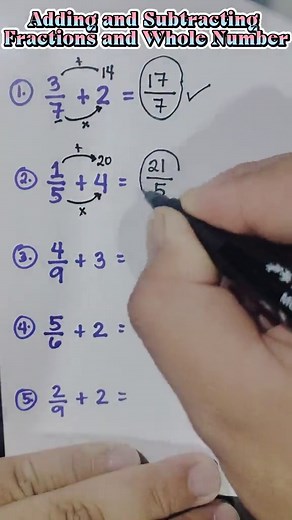 Adding and Subtracting
Fractions and Whole Number
+ 14
1. 3/7 + 2 = 17/7 ✓
x
+ 20
2. 1/5 + 4 = 21/5
x
3. 4/9 + 3 =
4. 5/6 + 2 =
5. 2/9 + 2 =